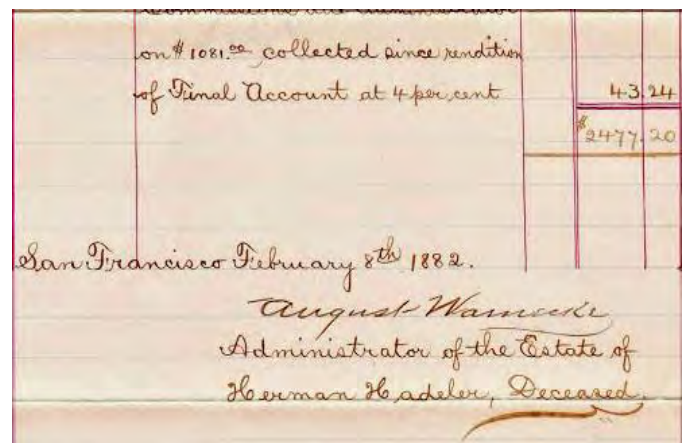 Commissions as Administrator
on $1081.00 collected since rendition
of Final Account at 4 per cent 43.24
$2477.20
San Francisco February 8th 1882.
August Warnecke
Administrator of the Estate of
Herman Hadeler, Deceased.